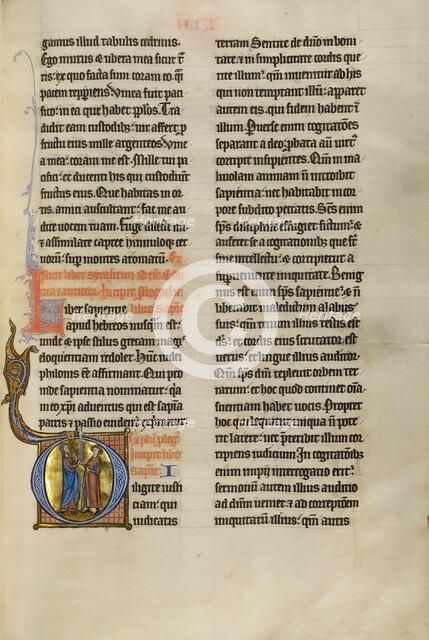 gamus illud tabulis cedrinis.
Ego murus & ubera mea sicut tur
ris: ex quo facta sum coram eo qi
pacem repperiens Vinea fuit paci
fico: in ea que habet pplos. Tra
didit eam custodib; uir affert p
fructu eius mille argenteos Vine
a mea: coram me est. Mille tui pa
cifici: et ducenti his qui custodiunt
fructus eius. Que habitas in or
tis. amici auscultant: fac me au
dire uocem tuam. Fuge dilecte mi
et assimilare capree hinnuloq; cer
uorum: sup montes aromatum.
Liber sapientie
apud hebreos nusqm est:
unde & ipse stilus grecam magis
eloquentiam redolet. Hunc iudei
philonis ee affirmant. Qui pro
inde sapientia nominatur: qa
in eo xpi aduentus qui est sapientia
patris et passio euidenter exprimitur.
Explic plog
Incipit liber
Sapie
Diligite iusti
ciam: qui
iudicatis
LIB
terram Sentite de dno in boni
tate: & in simplicitate cordis que
rite illum. qm inuenitur ab his
qui non temptant illum: apparet
autem eis qui fidem habent in
illum. Peruerse enim cogitationes
separant a deo: probata aut uirtus
corripit insipientes. Qm in ma
liuolam animam n introibit
sapientia: nec habitabit in cor
pore subdito peccatis. Sps enim
scs discipline effugiet fictum: &
auferet se a cogitationib; que st
sine intellectu: & corripietur a
supueniente iniquitate. Benig
nus est enim sps sapientie: & n
liberabit maledictum a labiis
suis: qm renum illius testis est
ds: & cordis eius scrutator est
uerus: et lingue illius auditor.
Qm sps dni repleuit orbem ter
rarum: et hoc quod continet omia
scientiam habet uocis. Propter
hoc qui loquitur iniqua n pote
rit latere: nec preteribit illum cor
ripiens iudicium In cogitationib;
enim impii interrogatio erit:
sermonum autem illius auditio
ad dm ueniet: & ad correptionem
iniquitatum illius: qm auris